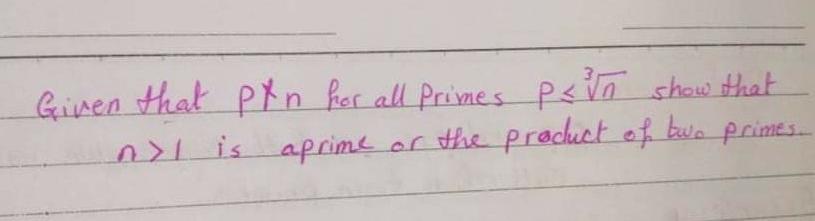 Given that p∤n for all primes p ≤ ∛n show that
n > 1 is a prime or the product of two primes.